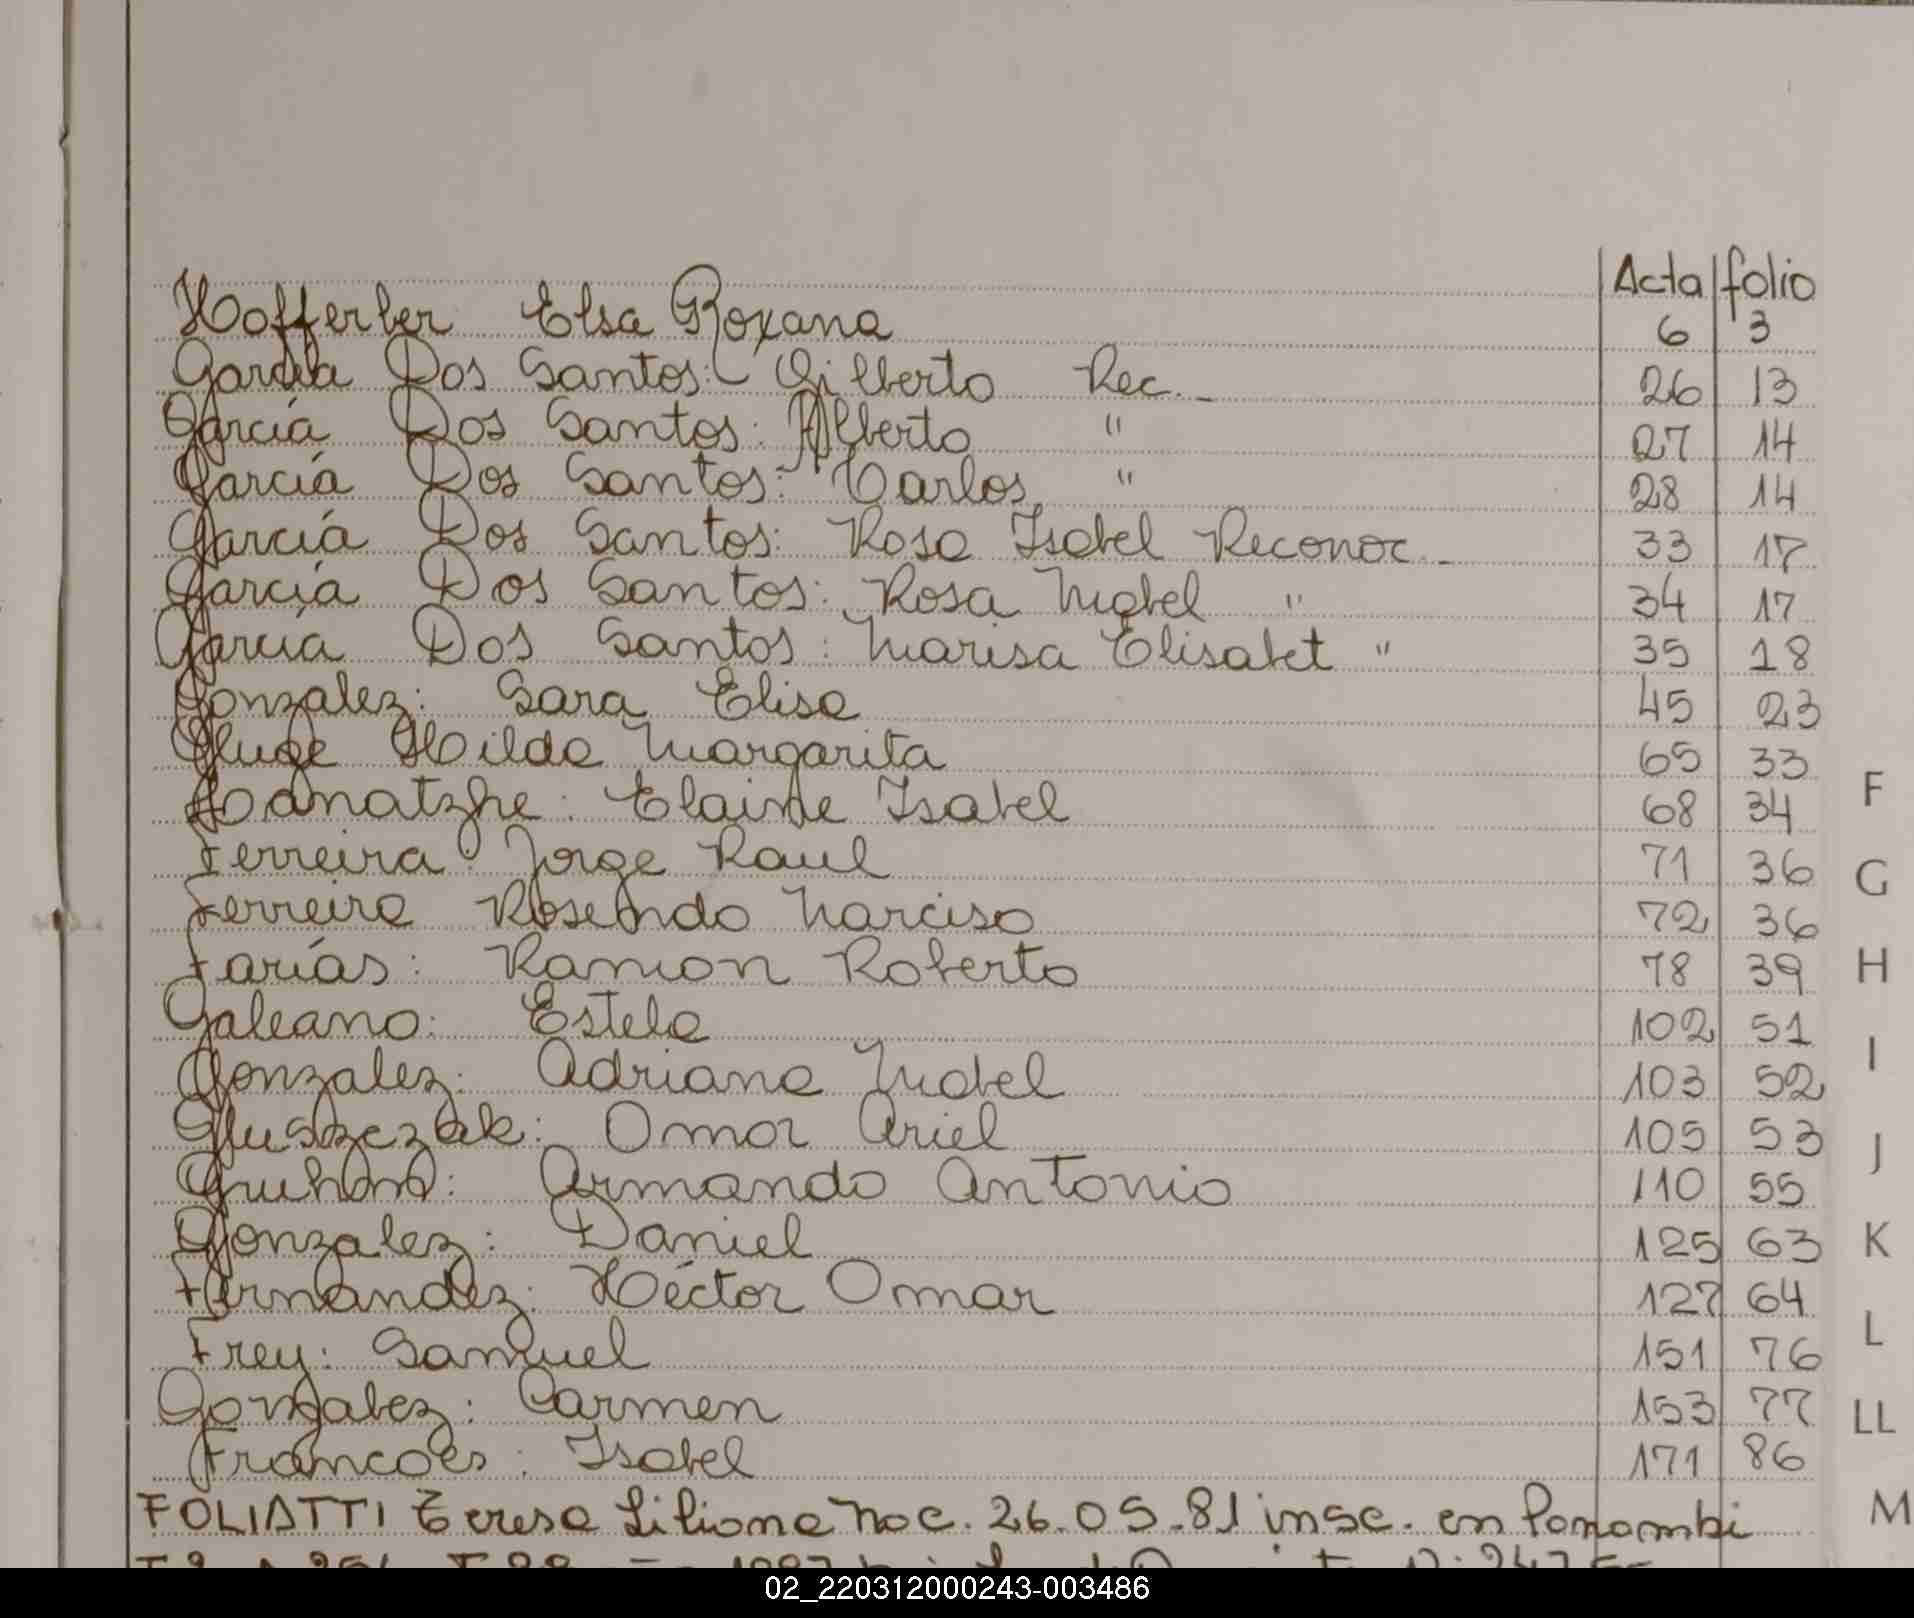 Acta folio
Hofferber Elsa Roxana 6 3
García Dos Santos: Gilberto Rec. 26 13
García Dos Santos: Alberto " 27 14
García Dos Santos: Carlos " 28 14
García Dos Santos: Rosa Isabel Reconoc. 33 17
García Dos Santos: Rosa Mabel " 34 17
García Dos Santos: Marisa Elisabet " 35 18
Gonzalez: Sara Elisa 45 23
Hilda Margarita 65 33
Elaine Isabel 68 34
Ferreira: Jorge Raul 71 36
Ferreira Rosendo Narciso 72 36
Farías: Ramon Roberto 78 39
Galeano: Estela 102 51
Gonzalez: Adriana Mabel 103 52
Omar Ariel 105 53
Armando Antonio 110 55
Gonzalez: Daniel 125 63
Fernandez: Héctor Omar 127 64
Frey: Samuel 151 76
Gonzalez: Carmen 153 77
Isabel 171 86
FOLIATTI Teresa Liliana Nac. 26.05.81 insc. en Panambi
F
G
H
I
J
K
L
LL
M
02_220312000243-003486